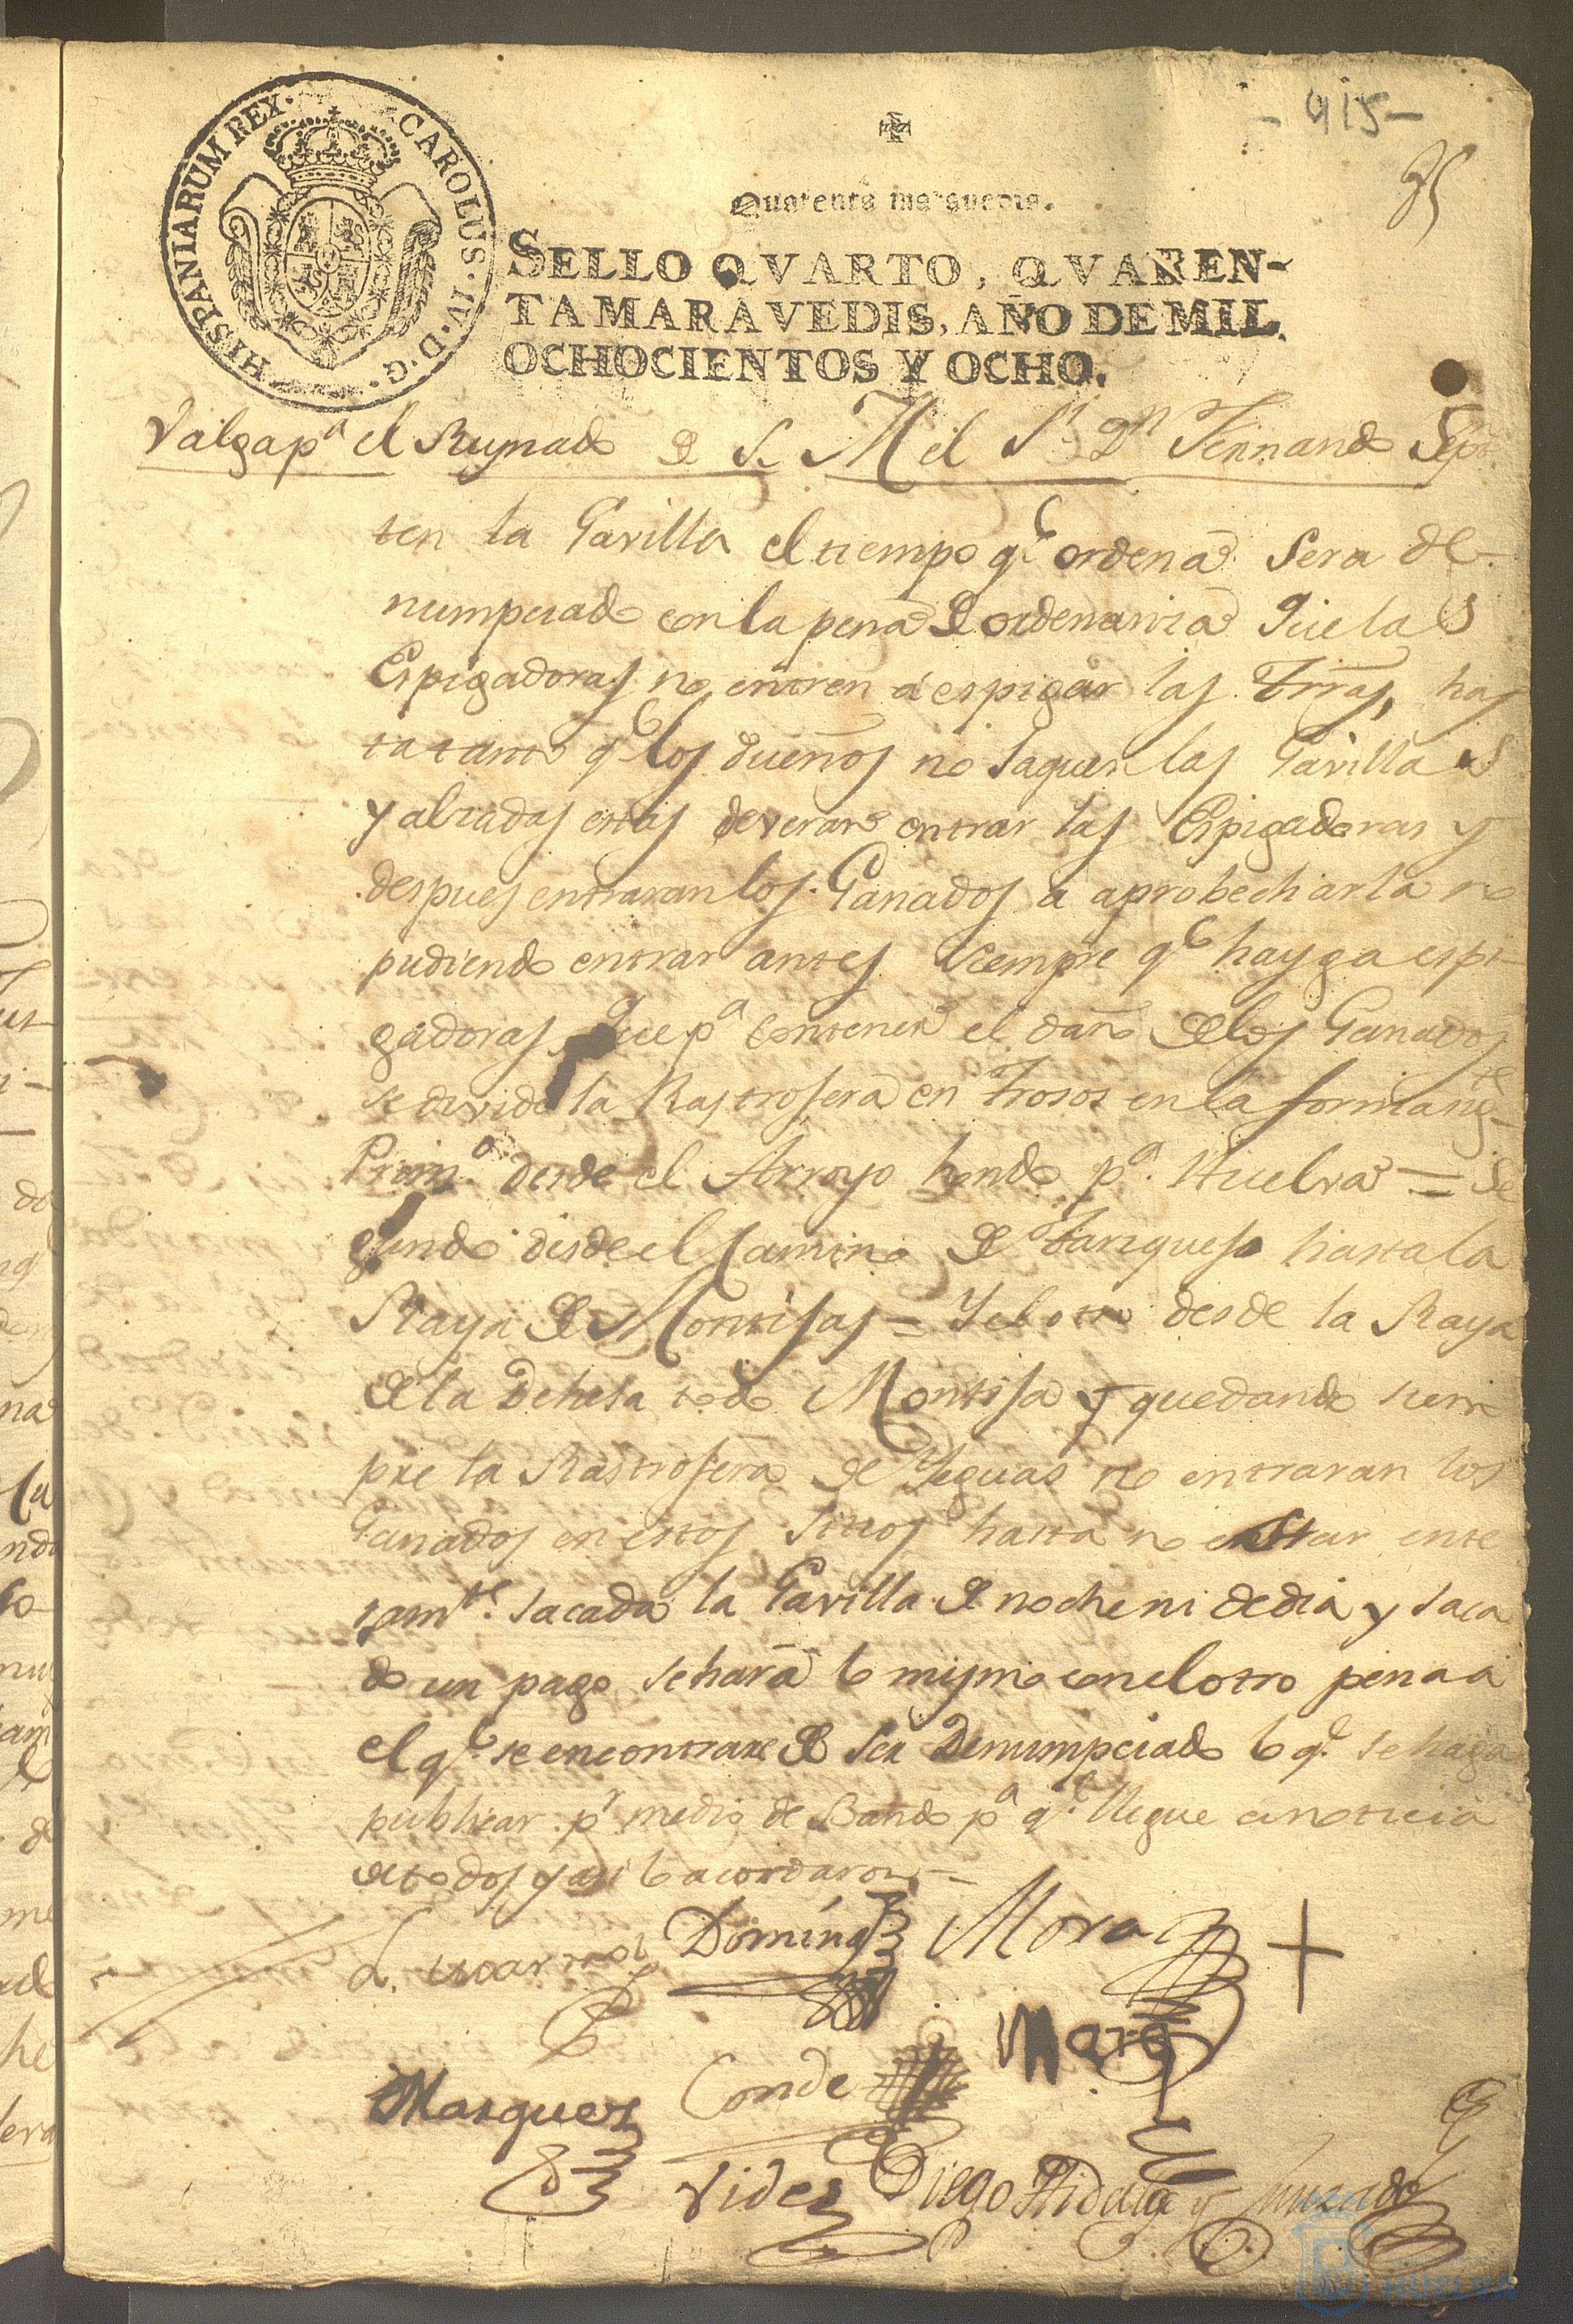 - 915 -
35
HISPANIARUM REX. CAROLUS. IV. D. G.
Quarenta maravedis.
SELLO QVARTO, QVAREN-
TA MARAVEDIS, AÑO DE MIL
OCHOCIENTOS Y OCHO.
Valga pa el Reynado de S. M el Sr Dn Fernando Sepmo
ten la Gavilla el tiempo qe ordena sera de
numpciado con la pena de ordenanza Que las
Espigadoras no entren a espigar las Trras, has
ta tanto qe los dueños no saquen las Gavillas
y alzadas estas deveran entrar las Espigadoras y
despues entraran los Ganados a aprobecharla no
pudiendo entrar antes siempre qe hayga espi
gadoras, Que pa contener el daño de los Ganados
se divide la Rastrosera en Trosos en la forma sigte
Primo desde el Arroyo hondo pa Huelva = Se
gundo desde el Camino de hasta la
Raya de Montijas = Y el otro desde la Raya
de la Dehesa todo Montija y quedando siem
pre la Rastrosera de Yeguas no entraran los
Ganados en estos sitios hasta no estar ente
ramte sacada la Gavilla de noche ni de dia y saca
do un pago se hara lo mismo con el otro pena a
el qe se encontrare de ser Denumpciado lo qe se haga
publicar pr medio de Bando pa qe llegue a noticia
de todos y asi lo acordaron =
Doming Mora +
Mora
Marquez Conde
Vides Diego Hidalgo y
HUELVA